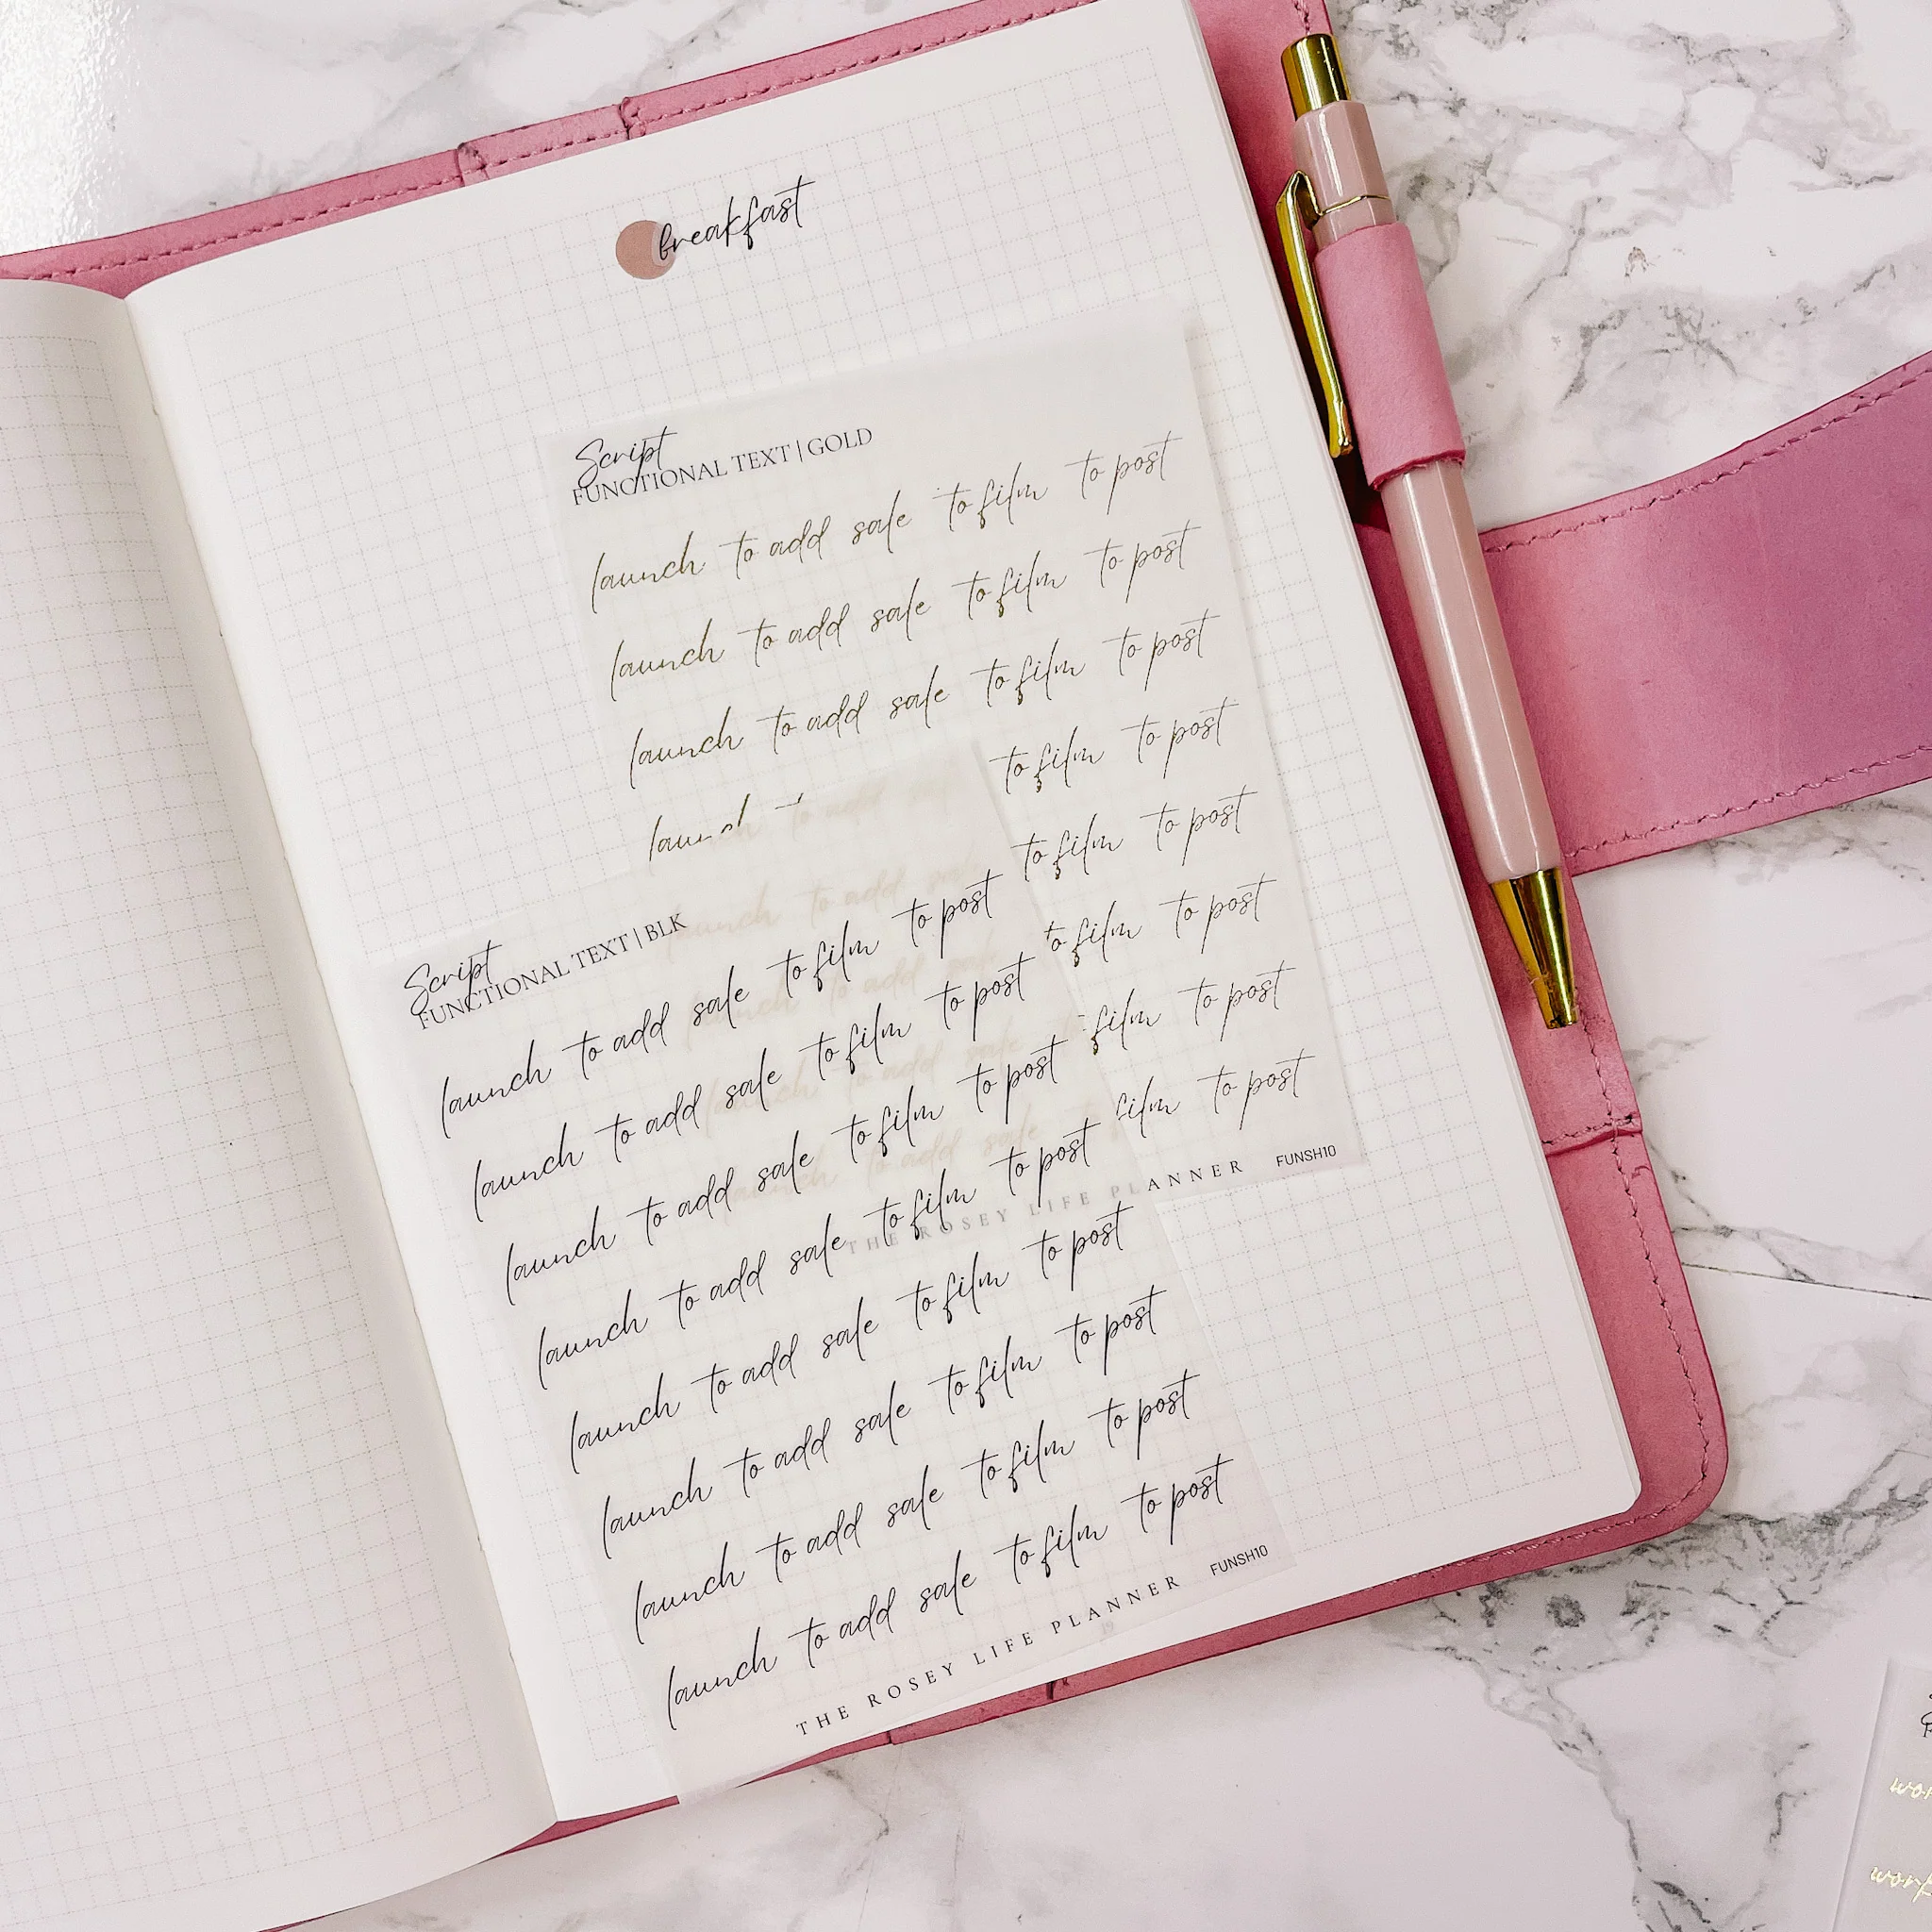 breakfast
Script
FUNCTIONAL TEXT | GOLD
launch to add sale to film to post
launch to add sale to film to post
launch to add sale to film to post
launch to add to film to post
launch to add to film to post
to add to film to post
to add film to post
launch to add sale film to post
THE ROSEY LIFE PLANNER FUNSH10
Script
FUNCTIONAL TEXT | BLK
launch to add sale to film to post
launch to add sale to film to post
launch to add sale to film to post
launch to add sale to film to post
launch to add sale to film to post
launch to add sale to film to post
launch to add sale to film to post
launch to add sale to film to post
THE ROSEY LIFE PLANNER FUNSH10